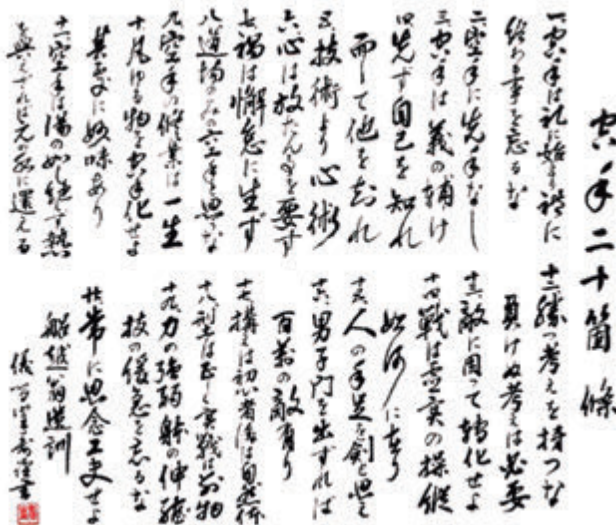 空手二十箇條
一空手は礼に始り礼に
終わる事を忘るな
二空手に先手なし
三空手は義の輔け
四先ず自己を知れ
而して他を知れ
五技術より心術
六心は放たん事を要す
七禍は懈怠に生ず
八道場のみの空手と思ふな
九空手の修業は一生
十凡ゆる物を空手化せよ
其処に妙味あり
十一空手は湯の如し絶えず熱
を與えざれば元の水に還える
十二勝つ考えを持つな
負けぬ考えは必要
十三敵に因って轉化せよ
十四戦は虚実の操縦
如何に在り
十五人の手足を剣と思え
十六男子門を出ずれば
百萬の敵有り
十七構えは初心者後は自然体
十八形は正しく実戦は別物
十九力の強弱躰の伸縮
技の緩急を忘るな
廿常に思念工夫せよ
船越一翁遺訓
儀間 謹書